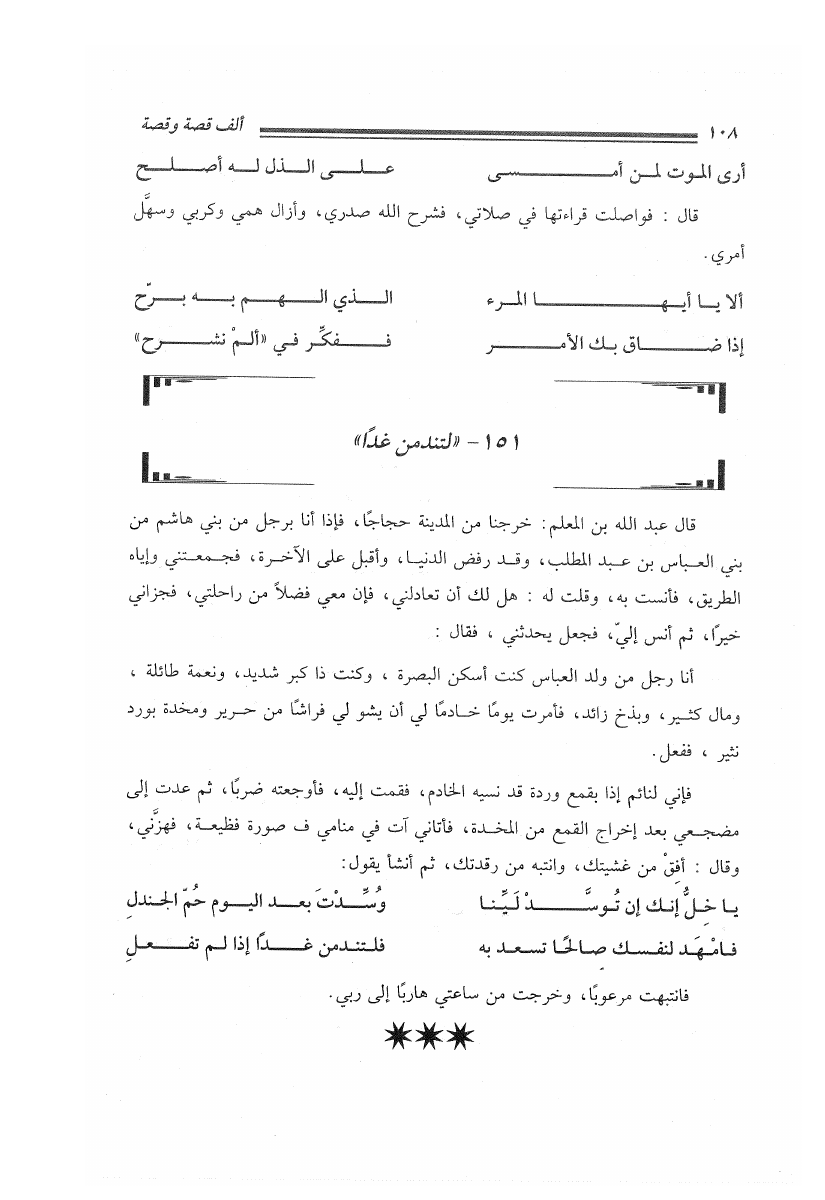 ١٠٨ ألف قصة وقصة
أرى الموت لمن أمسى على الذل له أصلح
قال : فواصلت قراءتها في صلاتي، فشرح الله صدري، وأزال همي وكربي وسهَّل
أمري.
ألا يا أيها المرء الذي الهم به برّح
إذا ضاق بك الأمر ففكِّر في «ألمْ نشرح»
١٥١ - «لتندمن غدًا»
قال عبد الله بن المعلم: خرجنا من المدينة حجاجًا، فإذا أنا برجل من بني هاشم من
بني العباس بن عبد المطلب، وقد رفض الدنيا، وأقبل على الآخرة، فجمعتني وإياه
الطريق، فأنست به، وقلت له : هل لك أن تعادلني، فإن معي فضلاً من راحلتي، فجزاني
خيرًا، ثم أنس إليّ، فجعل يحدثني ، فقال :
أنا رجل من ولد العباس كنت أسكن البصرة ، وكنت ذا كبر شديد، ونعمة طائلة ،
ومال كثير، وبذخ زائد، فأمرت يومًا خادمًا لي أن يشو لي فراشًا من حرير ومخدة بورد
نثير ، ففعل.
فإني لنائم إذا بقمع وردة قد نسيه الخادم، فقمت إليه، فأوجعته ضربًا، ثم عدت إلى
مضجعي بعد إخراج القمع من المخدة، فأتاني آت في منامي ف صورة فظيعة، فهزَّني،
وقال : أفِقْ من غشيتك، وانتبه من رقدتك، ثم أنشأ يقول:
يا خِلُّ إنك إن تُوسَّدْ لَيِّنا وُسِّدْتَ بعد اليوم صُمّ الجندلِ
فامْهَد لنفسك صالحًا تسعد به فلتندمن غدًا إذا لم تفعلِ
فانتبهت مرعوبًا، وخرجت من ساعتي هاربًا إلى ربي.